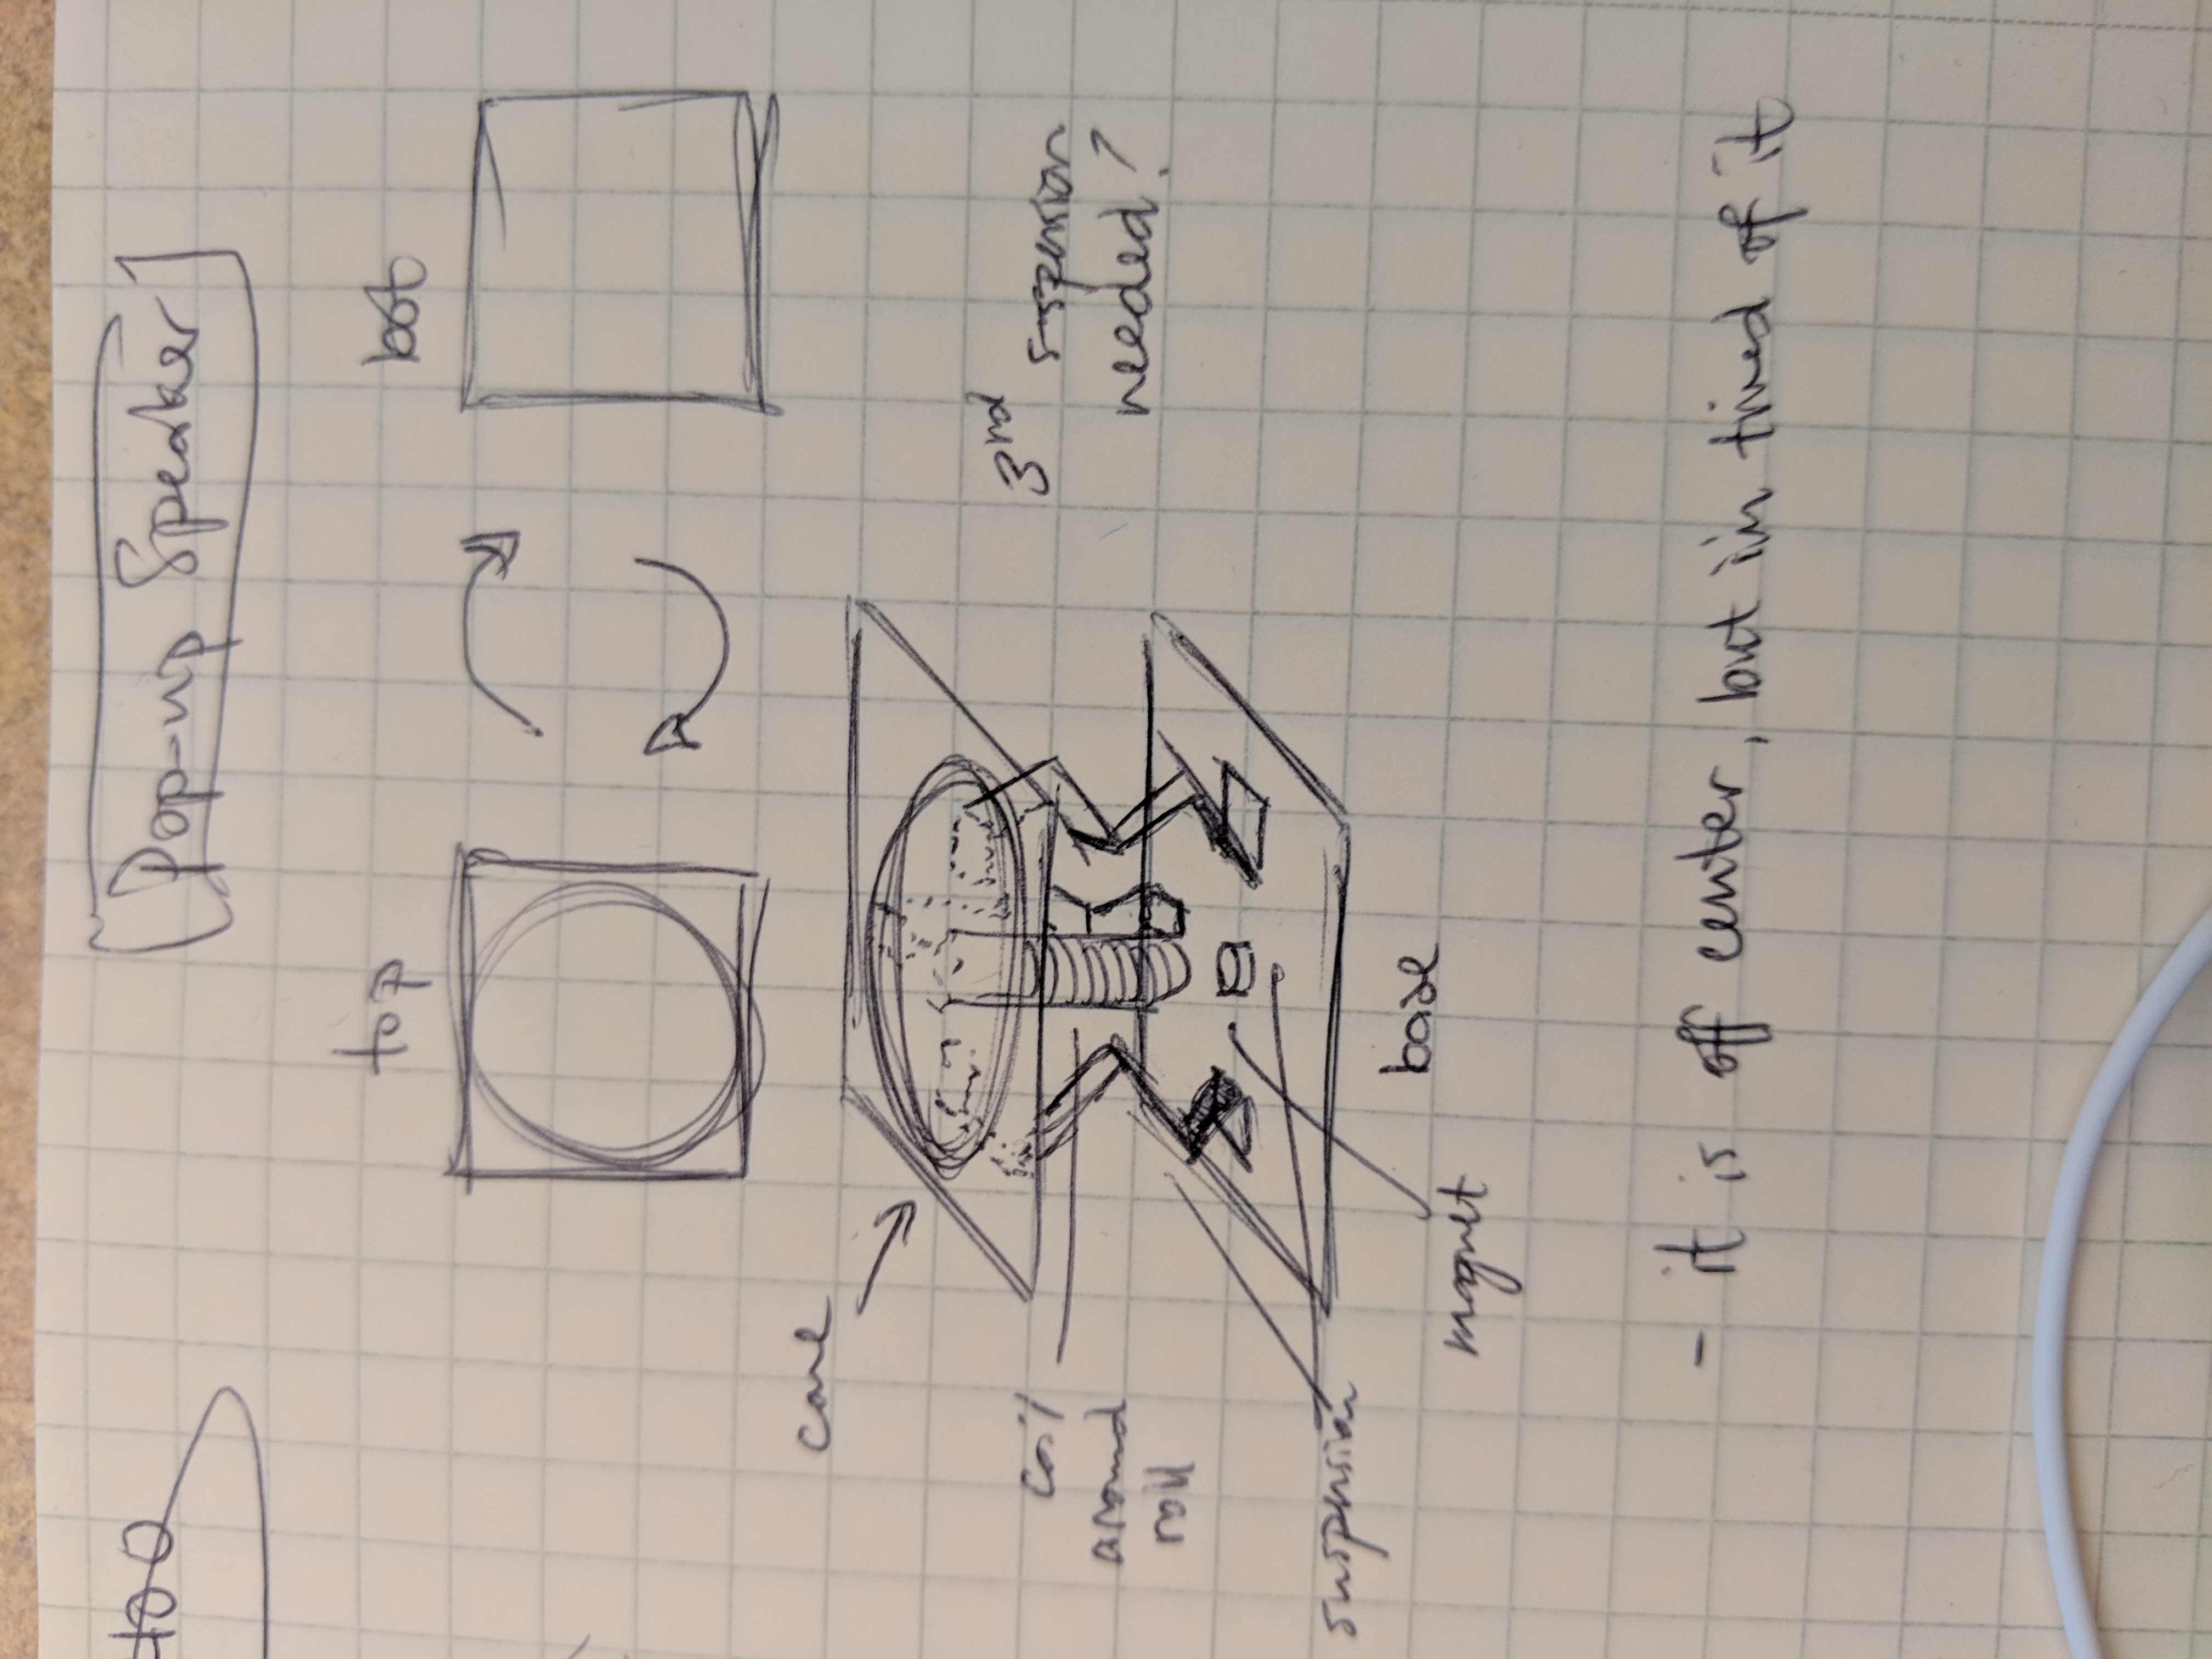 [Pop-up Speaker]
top
bot
cone
coil
around
roll
suspension
magnet
base
3rd suspension
needed?
- it is off center, but i'm tired of it